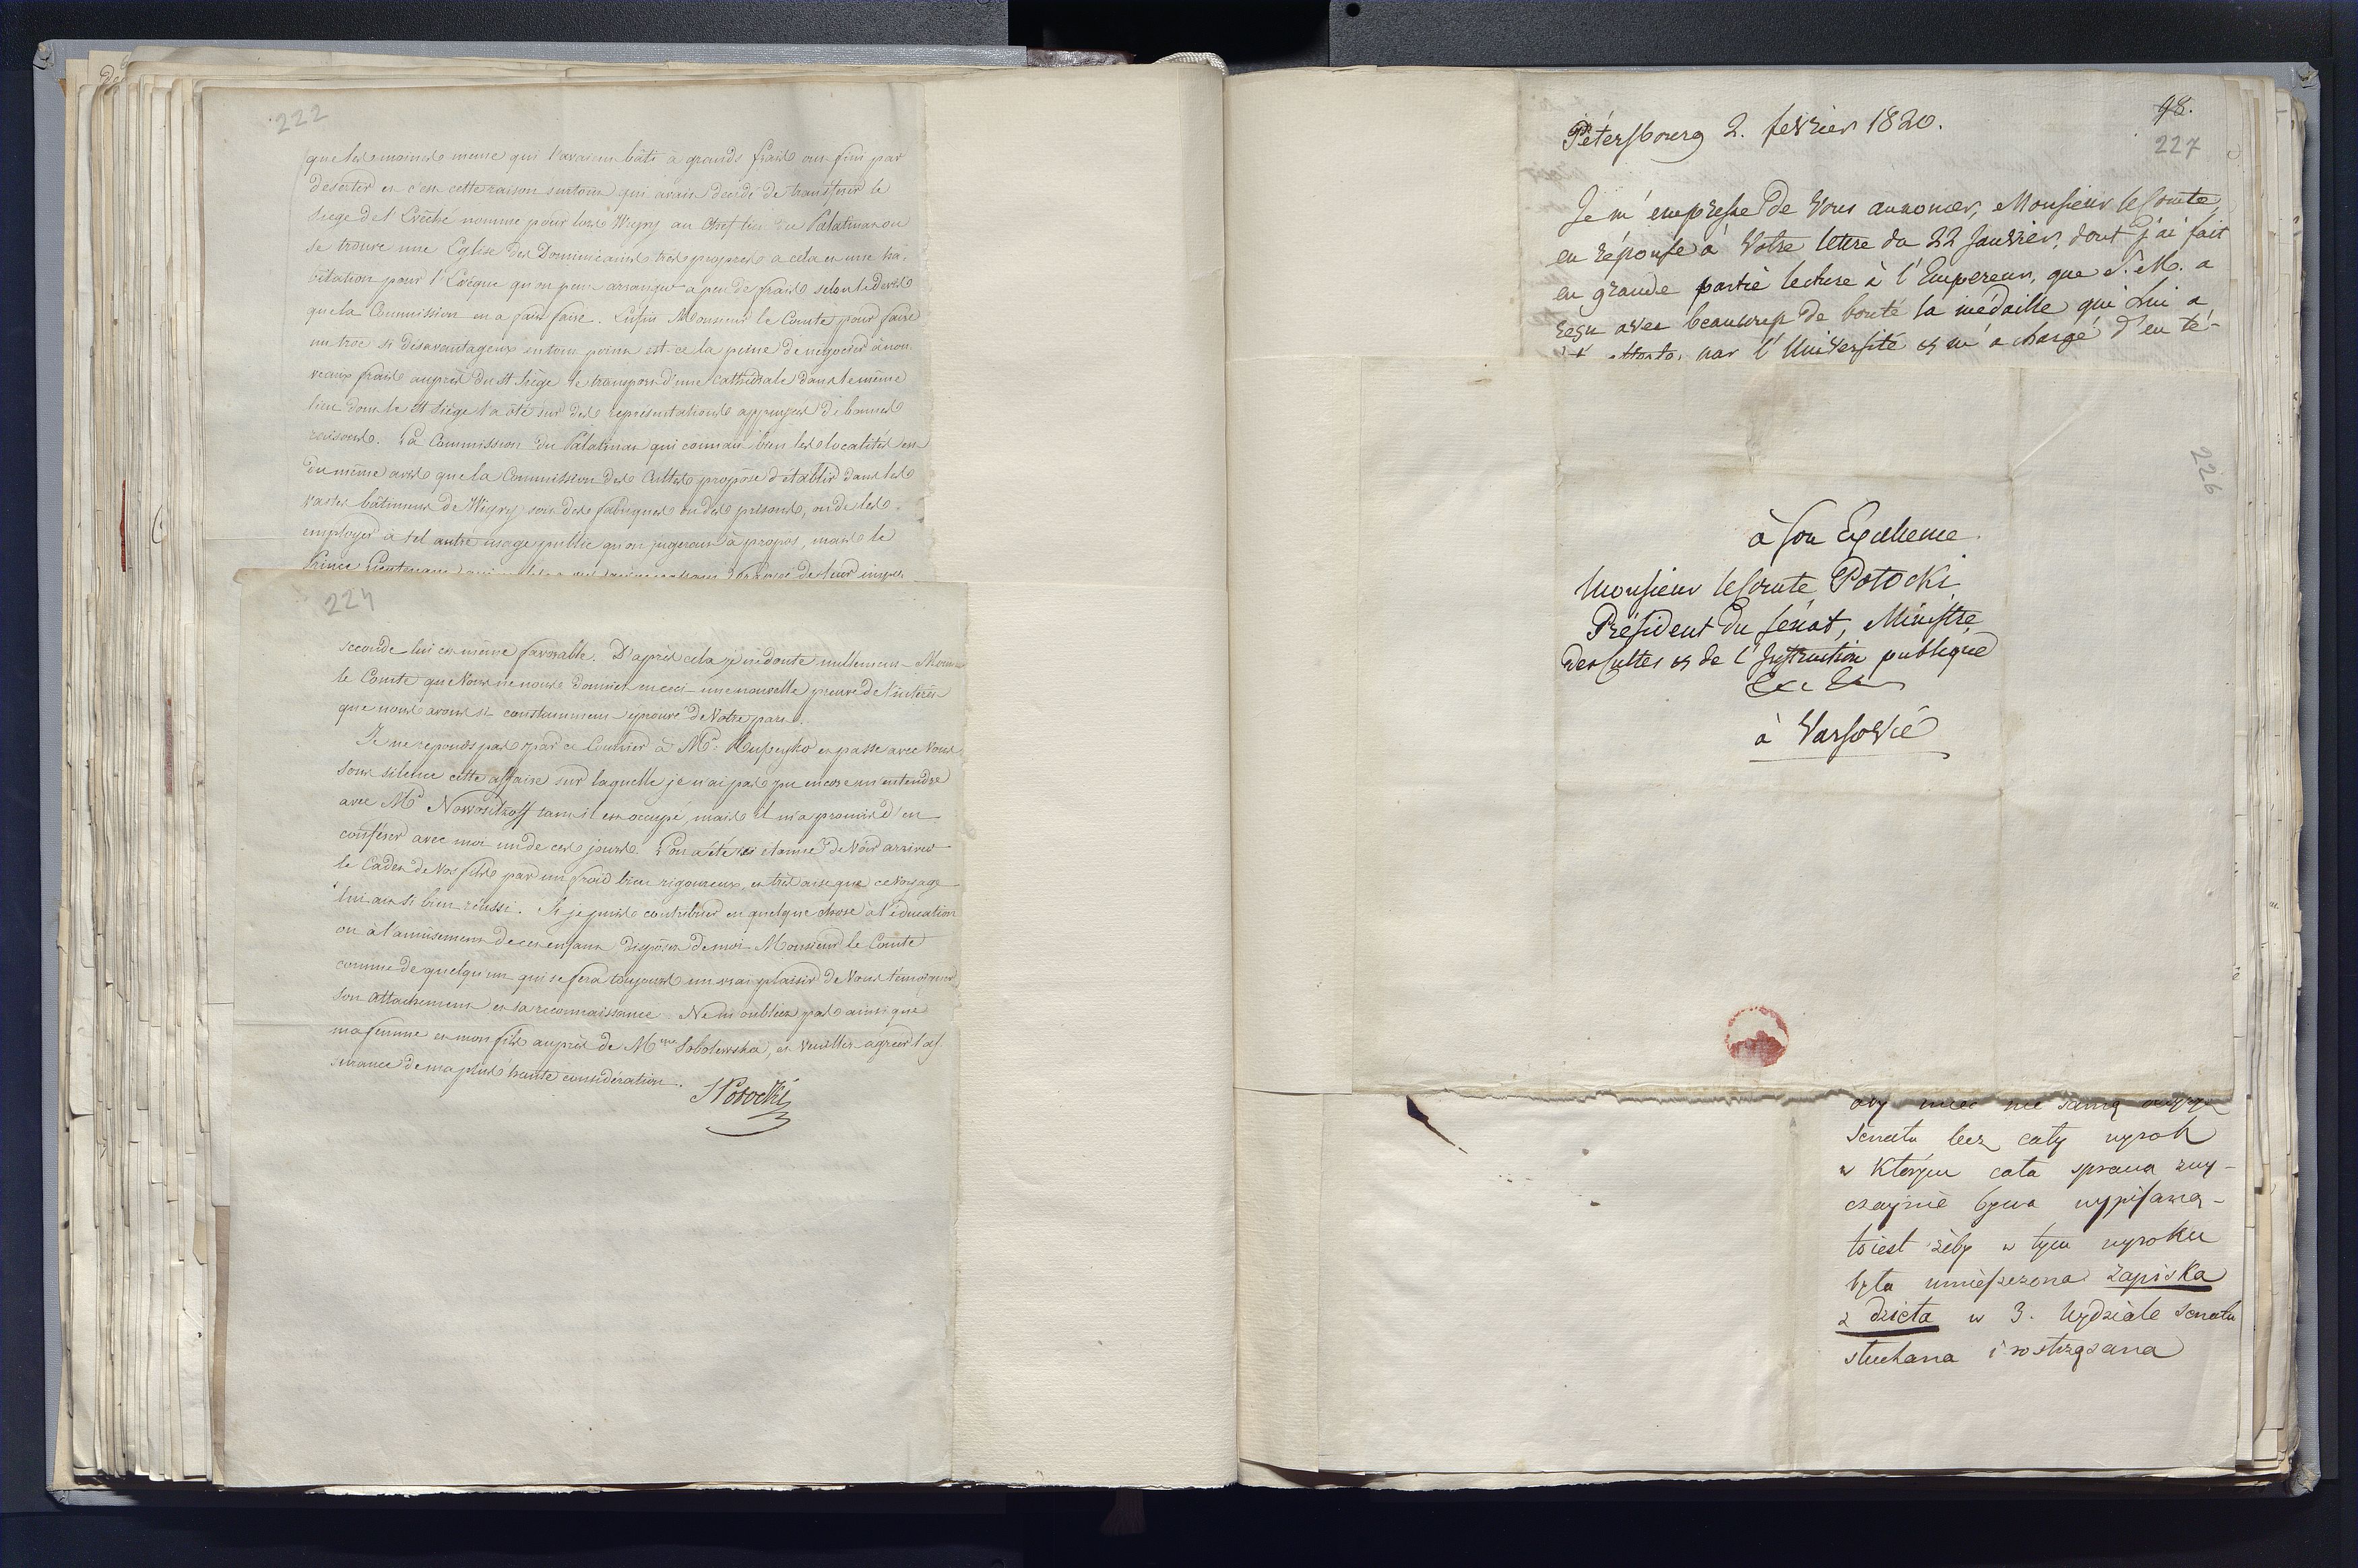 222
que les moines meme qui l'avaient bâti à grands frais ont fini par
deserter et c'est cette raison surtout qui avait decidé de transferer le
Siege de l'Evêché nommé pour lors Wigry au Chef lieu du Palatinat ou
se trouve une Eglise des Dominicains très propres a cela et une ha-
bitation pour l'Evêque qu'on peut arranger a peu de frais selon le devis
que la Commission en a fait faire. Enfin Monsieur le Comte pour faire
un troc si désavantageux en tout point est-ce la peine de négocier à nou
veaux frais auprès du St Siège le transport d'une Cathédrale dans le même
lieu dont le St Siège l'a ôté sur des représentations appuyées de bonnes
raisons. La Commission du Palatinat qui connait bien les localités est
du même avis que la Commission des Cultes propose d'établir dans les
vastes bâtimens de Wigry soit des fabriques ou des prisons, ou de les
employer à tel autre usage public qu'on jugerait à propos, mais le
Prince Lieutenant
224
seconde lui est même favorable. D'après cela je ne doute nullement Monsieur
le Comte que Vous ne nous donniez en ceci une nouvelle preuve de l'intérêt
que nous avons si constamment éprouvé de Votre part.
Je ne reponds pas par ce Courier à Mr. et passe avec Vous
sous silence cette affaire sur laquelle je n'ai pas pu encore m'entendre
avec Mr Nowosiltzoff tant il est occupé, mais il m'a promis d'en
conférer avec moi un de ces jours. L'on a été étonné de Voir arriver
le Cadet de Vos fils par un froid bien rigoureux, et très aise que ce Voyage
lui ait si bien réussi. Si je puis contribuer en quelque chose à l'éducation
ou à l'amusement de ces enfans disposez de moi Monsieur le Comte
comme de quelqu'un qui se fera toujours un vrai plaisir de Vous témoigner
son attachement et sa reconnaissance. Ne m'oubliez pas ainsi que
ma femme et mon fils auprès de Mme Sobolewska, et Veuillez agréer l'as
surance de ma plus haute considération.
S Potocki
98.
227
Pétersbourg 2. fevrier 1820.
Je m'empresse de Vous annoncer, Monsieur le Comte,
en réponse à Votre lettre du 22 Janvier, dont j'ai fait
en grande partie lecture à l'Empereur, que S. M. a
reçu avec beaucoup de bonté la médaille qui Lui a
par l'Université et m'a chargé d'en té-
226
à Son Excellence
Monsieur le Comte Potocki
Président du Sénat, Ministre
des Cultes et de l'Instruction publique
&c &c
à Varsovie
aby mieć nie samą
Senatu lecz cały wyrok
w którym cała sprawa zwy-
czaynie bywa wypisaną -
to iest żeby w tym wyroku
była umieszczona zapiska
z dzieła w 3. Wydziale Senatu
słuchana i roztrząsana